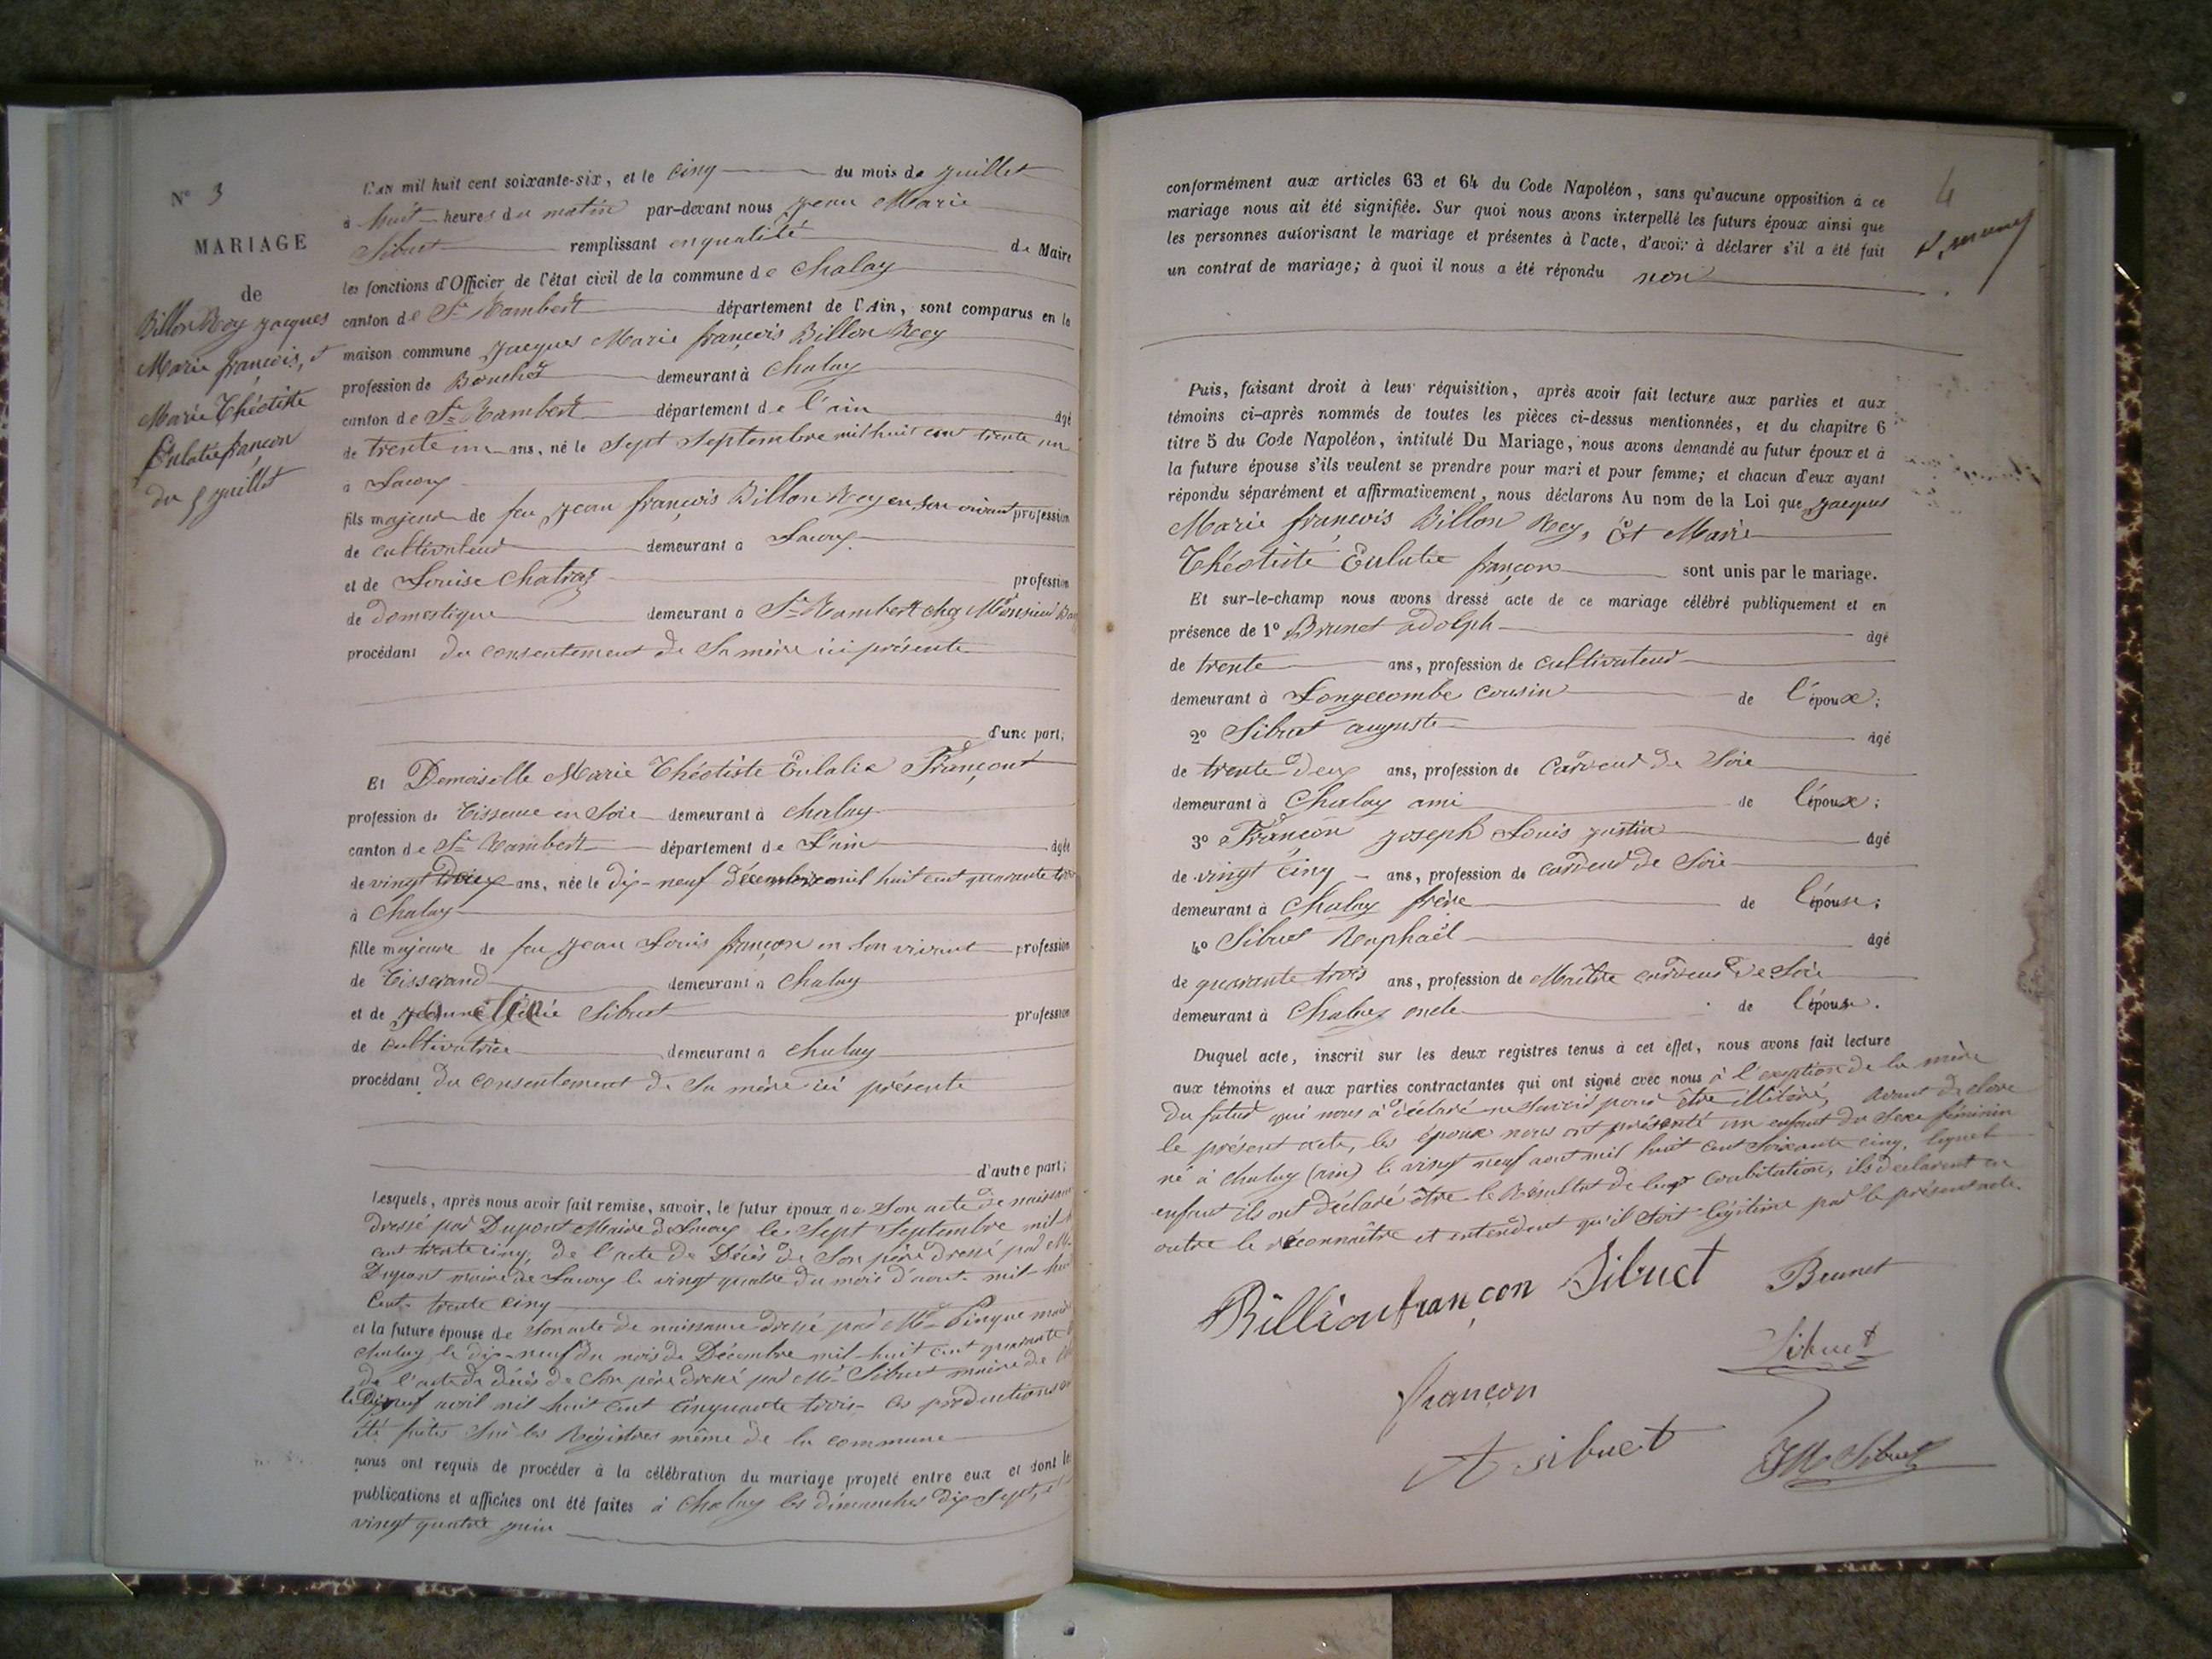 N° 3
MARIAGE
de
Billon Rey Jacques
Marie françois, et
Marie Théotiste
Eulalie françon
du 5 juillet
L'AN mil huit cent soixante-six, et le cinq du mois de juillet
à huit heures du matin par-devant nous Jean Marie
Sibuet remplissant en qualité de Maire
les fonctions d'Officier de l'état civil de la commune de Chaley
canton de St Rambert département de l'Ain, sont comparus en la
maison commune Jacques Marie françois Billon Rey
profession de Boucher demeurant à Chaley
canton de St Rambert département de l'ain âgé
de trente un ans, né le Sept Septembre mil huit cent trente un
à
fils majeur de feu Jean françois Billon Rey en son vivant profession
de cultivateur demeurant à
et de Louise Chatraz profession
de domestique demeurant à St Rambert chez Monsieur
procédant du consentement de Sa mère ici présente
d'une part;
Et Demoiselle Marie Théotiste Eulalie Françont
profession de Tisseuse en Soie demeurant à Chaley
canton de St Rambert département de L'ain âgée
de vingt deux ans, née le dix-neuf décembre mil huit cent quarante
à Chaley
fille majeure de feu Jean Louis françon en son vivant profession
de Tisserand demeurant à Chaley
et de Sibuet profession
de cultivatrice demeurant à Chaley
procédant du consentement de Sa mère ici présente
d'autre part;
Lesquels, après nous avoir fait remise, savoir, le futur époux de Son acte de
dressé par Dupont Maire de le Sept Septembre mil
cent trente cinq, de l'acte de Décès de Son père dressé par Mr
Dupont maire de le vingt quatre du mois d'aout mil
Cent trente cinq
et la future épouse de Son acte de naissance dressé par Mr
Chaley, le dix-neuf du mois de Décembre mil-huit cent quarante
de l'acte de décès de Son père dressé par Mr Sibuet maire de
avril mil huit cent cinquante trois ces productions
été faites Sur les Régistres même de la commune
nous ont requis de procéder à la célébration du mariage projeté entre eux et dont les
publications et affiches ont été faites à Chaley les dimanches dix Sept, et
vingt quatre juin
4
conformément aux articles 63 et 64 du Code Napoléon, sans qu'aucune opposition à ce
mariage nous ait été signifiée. Sur quoi nous avons interpellé les futurs époux ainsi que
les personnes autorisant le mariage et présentes à l'acte, d'avoir à déclarer s'il a été fait
un contrat de mariage; à quoi il nous a été répondu non
Puis, faisant droit à leur réquisition, après avoir fait lecture aux parties et aux
témoins ci-après nommés de toutes les pièces ci-dessus mentionnées, et du chapitre 6
titre 5 du Code Napoléon, intitulé Du Mariage, nous avons demandé au futur époux et à
la future épouse s'ils veulent se prendre pour mari et pour femme; et chacun d'eux ayant
répondu séparément et affirmativement, nous déclarons Au nom de la Loi que Jacques
Marie françois Billon Rey, Et Marie
Théotiste Eulalie françon sont unis par le mariage.
Et sur-le-champ nous avons dressé acte de ce mariage célébré publiquement et en
présence de 1° Brunet adolph âgé
de trente ans, profession de cultivateur
demeurant à Longecombe cousin de l'époux;
2° Sibuet auguste âgé
de trente deux ans, profession de Cardeur de Soie
demeurant à Chaley ami de l'époux;
3° Françon Joseph Louis Justin âgé
de vingt cinq ans, profession de cardeur de Soie
demeurant à Chaley frère de l'épouse;
4° Sibuet Raphaël âgé
de quarante trois ans, profession de Maître cardeur de Soie
demeurant à Chaley oncle de l'épouse.
Duquel acte, inscrit sur les deux registres tenus à cet effet, nous avons fait lecture
aux témoins et aux parties contractantes qui ont signé avec nous à l'exception de la mère
du futur qui nous a déclaré ne savoir pour être illitéré, avant de clore
le présent acte, les époux nous ont présenté un enfant du Sexe féminin
né à Chaley (ain) le vingt neuf aout mil huit cent soixante cinq, lequel
enfant ils ont déclaré être le Résultat de leur Coabitation, ils déclarent en
outre le réconnaître et entendent qu'il Soit légitimé par le présent acte.
Billion françon Sibuet Brunet
Sibuet
françon
A sibuet JM Sibuet